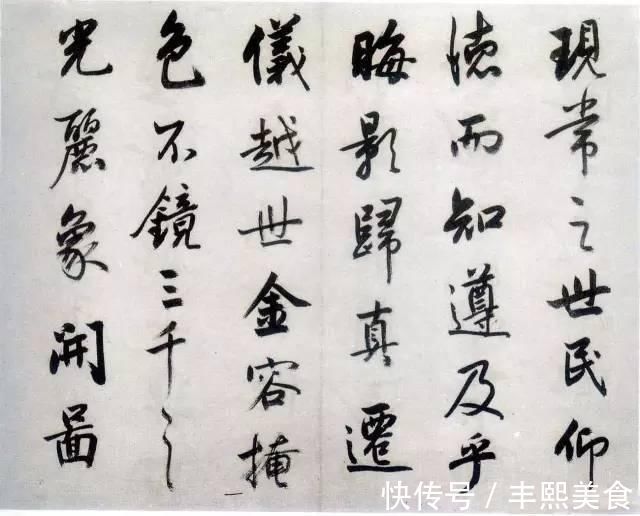 現常之世民仰
德而知遵及乎
晦影歸真遷
儀越世金容掩
色不鏡三千之
光麗象開啚
快传号／丰熙美食